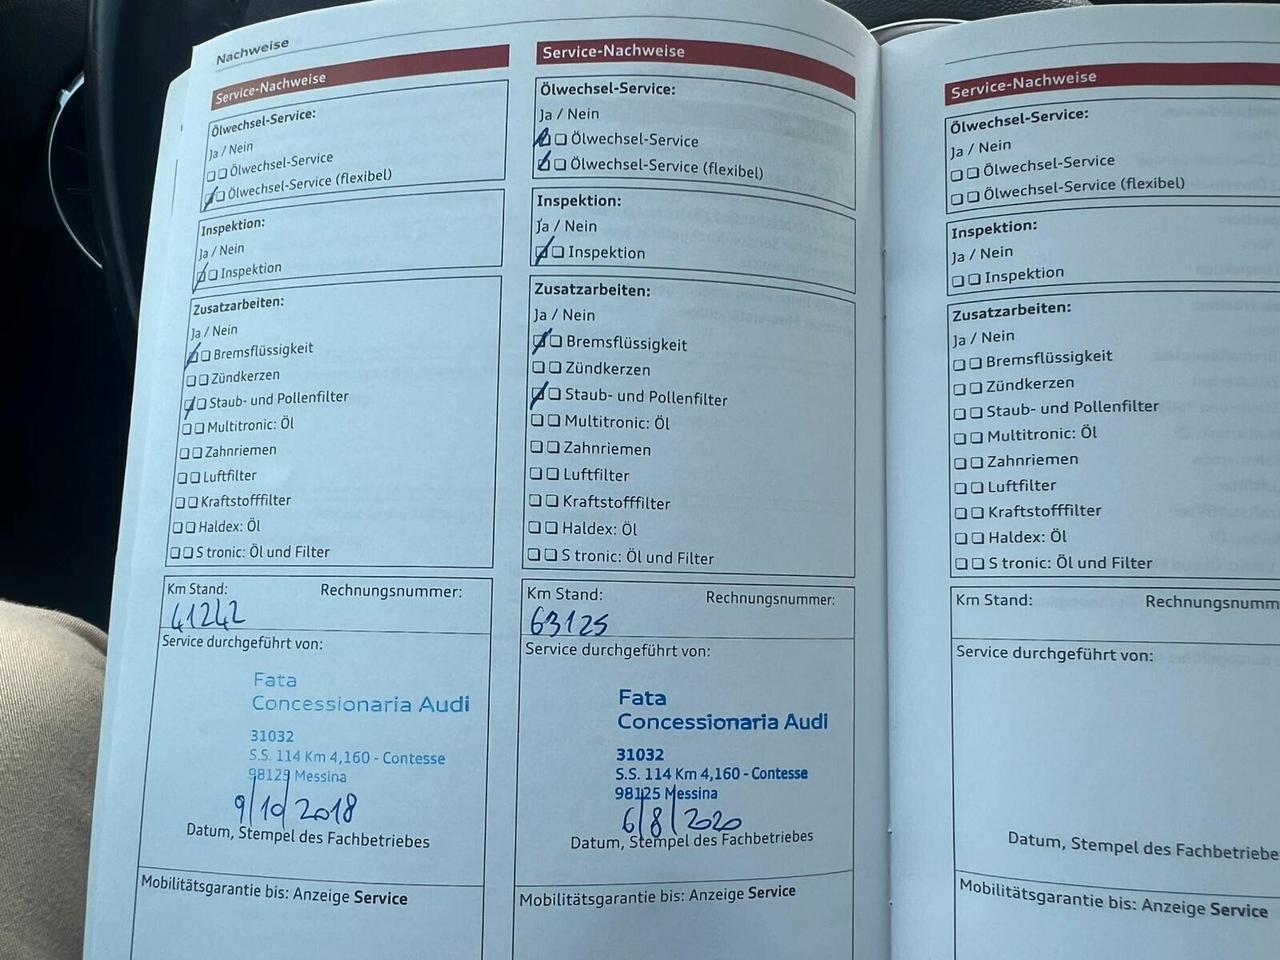 Nachweise
Service-Nachweise
Ölwechsel-Service:
Ja / Nein
Ölwechsel-Service
Ölwechsel-Service (flexibel)
Inspektion:
Ja / Nein
Inspektion
Zusatzarbeiten:
Ja / Nein
Bremsflüssigkeit
Zündkerzen
Staub- und Pollenfilter
Multitronic: Öl
Zahnriemen
Luftfilter
Kraftstofffilter
Haldex: Öl
S tronic: Öl und Filter
Km Stand: Rechnungsnummer:
41242
Service durchgeführt von:
Fata
Concessionaria Audi
31032
S.S. 114 Km 4,160 - Contesse
98125 Messina
9/10/2018
Datum, Stempel des Fachbetriebes
Mobilitätsgarantie bis: Anzeige Service
Service-Nachweise
Ölwechsel-Service:
Ja / Nein
Ölwechsel-Service
Ölwechsel-Service (flexibel)
Inspektion:
Ja / Nein
Inspektion
Zusatzarbeiten:
Ja / Nein
Bremsflüssigkeit
Zündkerzen
Staub- und Pollenfilter
Multitronic: Öl
Zahnriemen
Luftfilter
Kraftstofffilter
Haldex: Öl
S tronic: Öl und Filter
Km Stand: Rechnungsnummer:
63125
Service durchgeführt von:
Fata
Concessionaria Audi
31032
S.S. 114 Km 4,160 - Contesse
98125 Messina
6/8/2020
Datum, Stempel des Fachbetriebes
Mobilitätsgarantie bis: Anzeige Service
Service-Nachweise
Ölwechsel-Service:
Ja / Nein
Ölwechsel-Service
Ölwechsel-Service (flexibel)
Inspektion:
Ja / Nein
Inspektion
Zusatzarbeiten:
Ja / Nein
Bremsflüssigkeit
Zündkerzen
Staub- und Pollenfilter
Multitronic: Öl
Zahnriemen
Luftfilter
Kraftstofffilter
Haldex: Öl
S tronic: Öl und Filter
Km Stand: Rechnungsnumm
Service durchgeführt von:
Datum, Stempel des Fachbetriebe
Mobilitätsgarantie bis: Anzeige Service